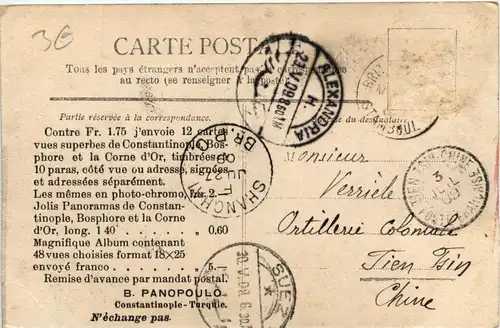 3€
CARTE POSTALE
Tous les pays étrangers n'acceptent pas la
au recto (se renseigner à la poste)
Partie réservée à la correspondance.
du destinataire
Contre Fr. 1.75 j'envoie 12 cartes
vues superbes de Constantinople Bos-
phore et la Corne d'Or, timbrées
10 paras, côté vue ou adresse, signées
et adressées séparément.
Les mêmes en photo-chromo, Frs. 2.-
Jolis Panoramas de Constan-
tinople, Bosphore et la Corne
d'Or, long. 1 40 . . » 0.60
Magnifique Album contenant
48 vues choisies format 18×25
envoyé franco . . . . 5.-
Remise d'avance par mandat postal.
B. PANOPOULO
Constantinople - Turquie.
N'échange pas.
ALEXANDRIA
SHANGHAI
BR.
SUEZ
TIEN-TSIN-CHINE
Monsieur
Verrièle
Artillerie Coloniale
Tien Tsin
Chine